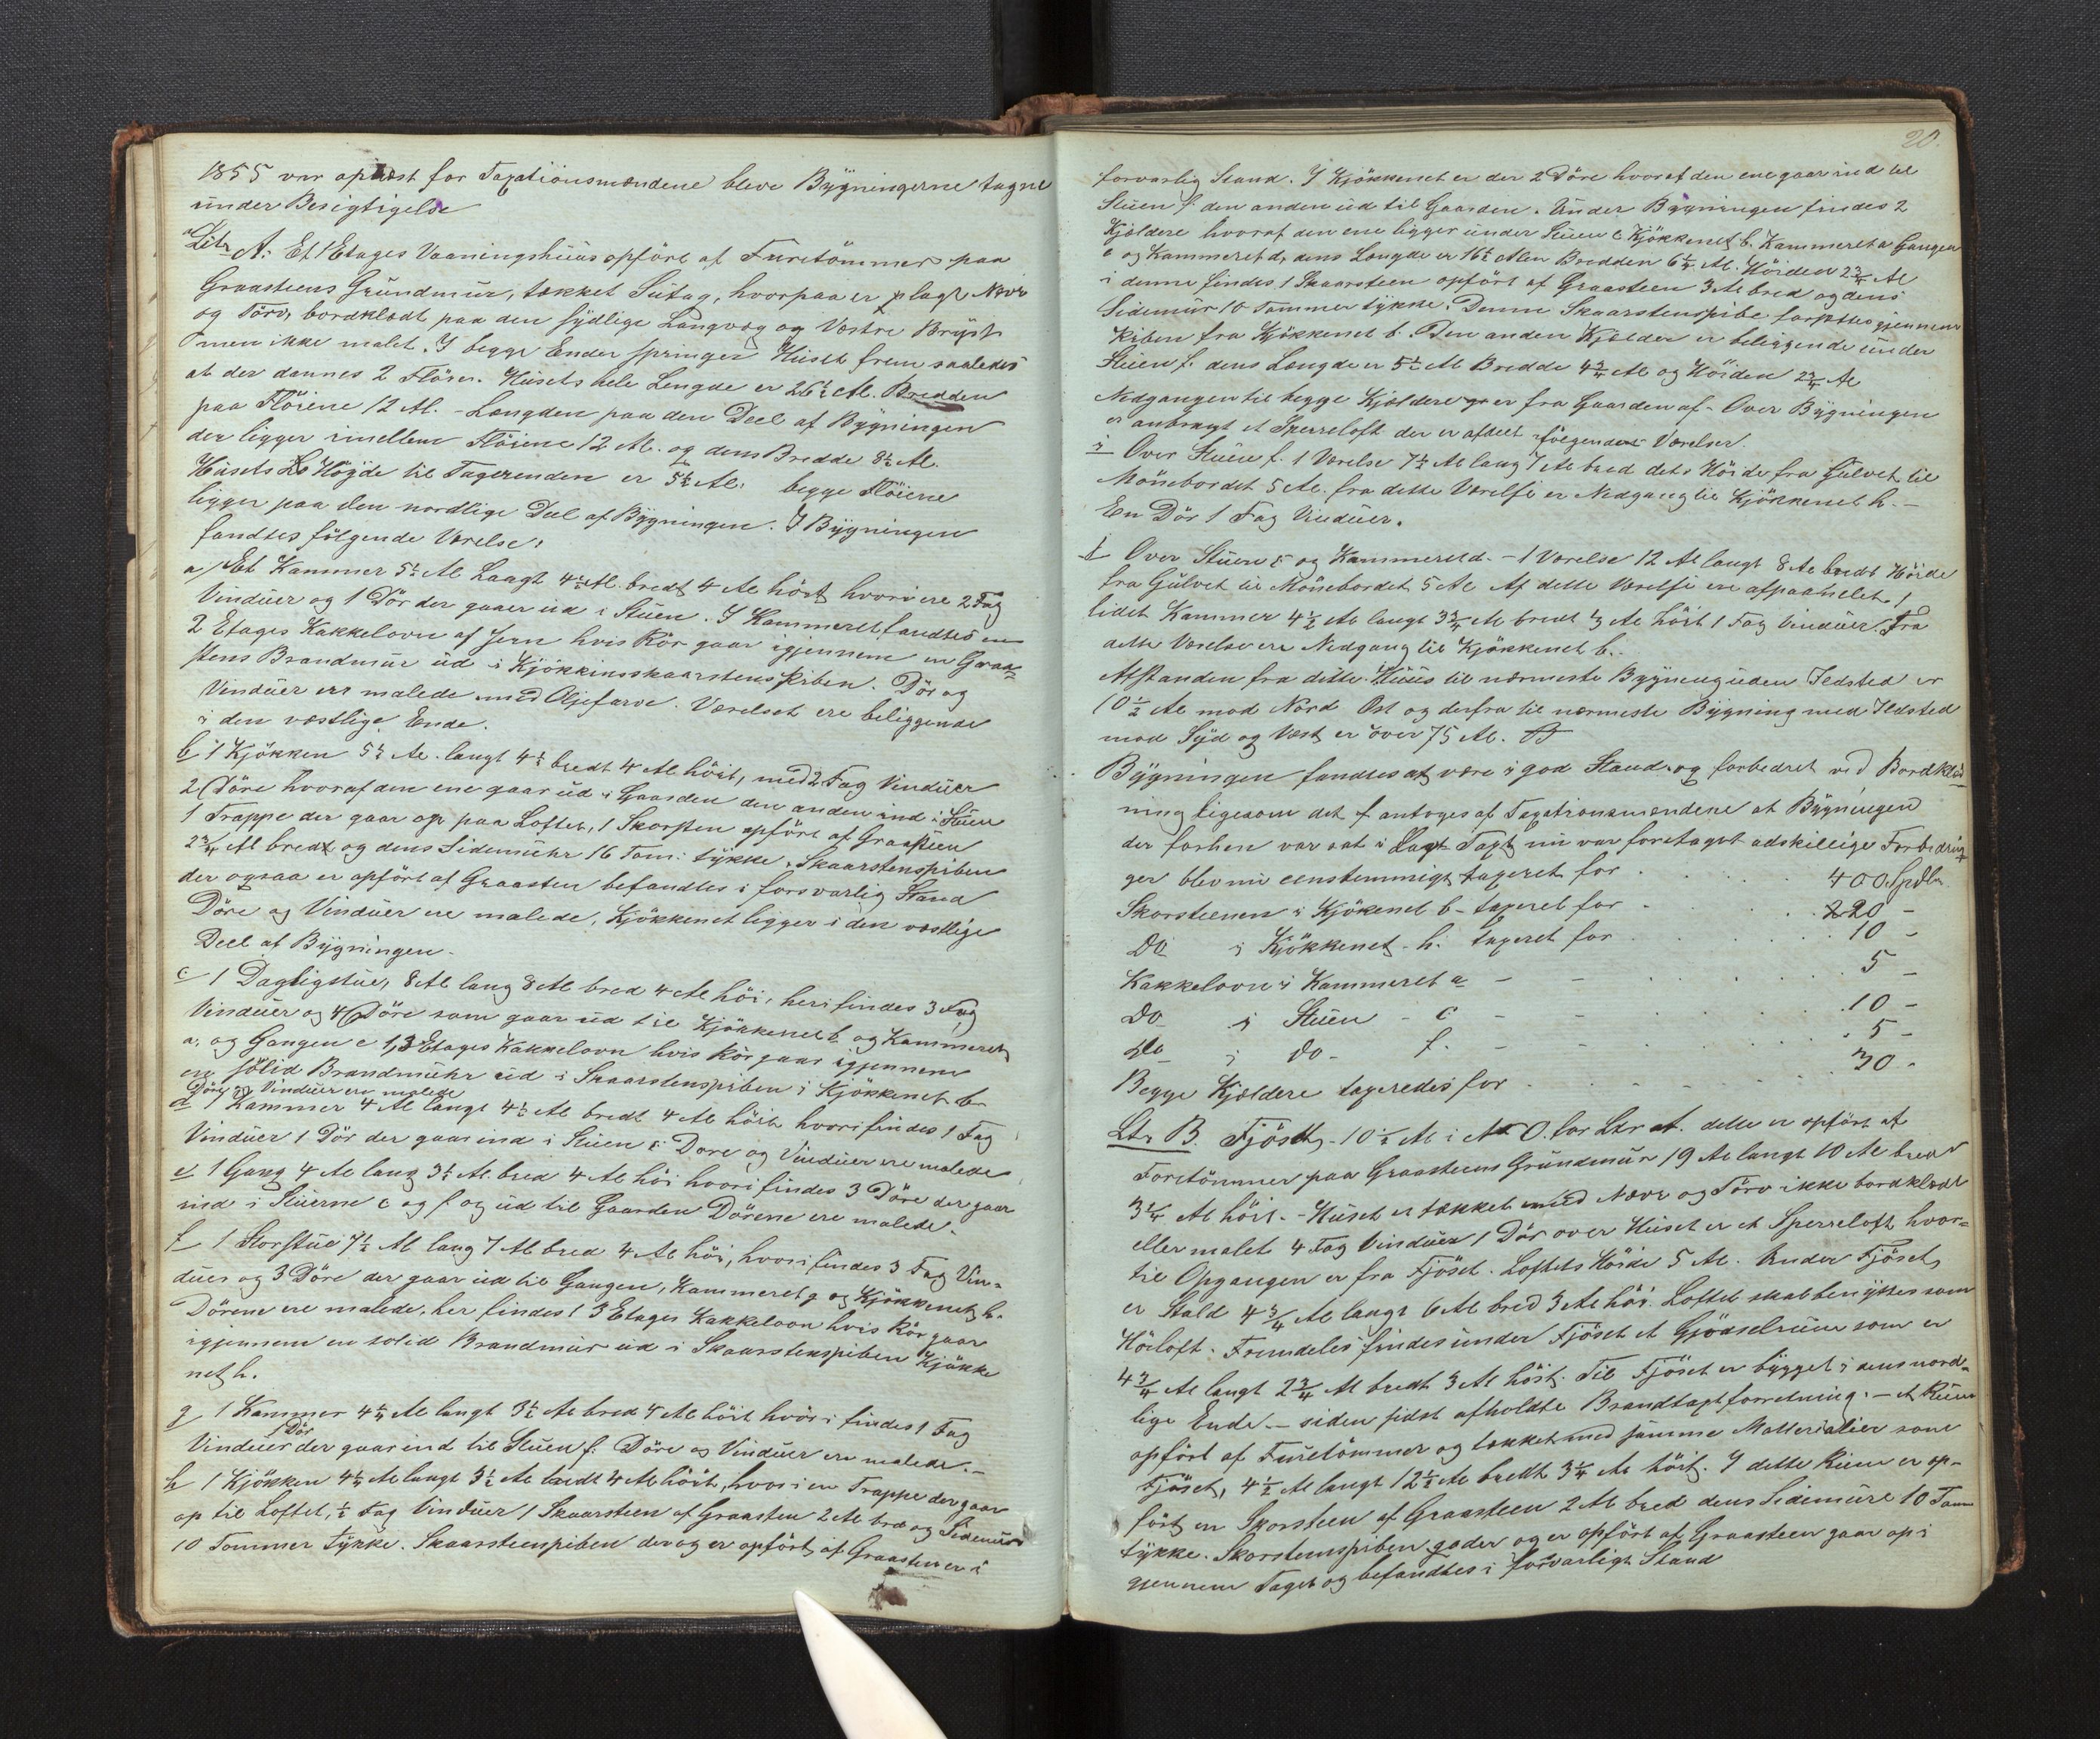 1855 var oplæst for Taxationsmændene bleve Bygningerne tagne
under Besigtigelse
Litr A. Et 1 Etages Vaaningshuus opført af Furetømmer paa
Graasteens Grundmur, tækket Sutag, hvorpaa er plagt Næver
og Törv, bordklædt paa den sydlige Langvæg og Vestre Bryst
men ikke malet. I begge Ender springer Huset frem saaledes
at der dannes 2 Flöier. Husets hele Længde er 26½ Al. Bredden
paa Flöiene 12 Al. - Længden paa den Deel af Bygningen
der ligger imellem Flöiene 12 Al. og dens Bredde 8½ Al.
Husets Höyde til Tagrenden er 5½ Al. begge Flöiene
ligger paa den nordlige Deel af Bygningen. I Bygningen
fandtes fölgende Værelser
a/ Et Kammer 5½ Al Langt 4½ Al. bredt 4 Al höit hvori ere 2 Fag
Vinduer og 1 Dör der gaaer ud i Stuen. I Kammeret fandtes en
2 Etages Kakkelovn af Jern hvis Rör gaar igjennem en Graa=
stens Brandmur ud i Kjökkinsskaarstenspiben. Dör og
Vinduer ere malede med Oljefarve. Værelset ere beliggende
i den vestlige Ende.
b 1 Kjökken 5½ Al. langt 4½ bredt 4 Al höit, med 2 Fag Vinduer
2 Döre hvoraf den ene gaar ud i Gaarden den anden ind i Stuen
1 Trappe der gaar op paa Loftet, 1 Skorsten opfört af Graasteen
2¾ Al bredt og dens Sidemuhr 16 Tom: tykke, Skaarstenspiben
der ogsaa er opfört af Graasten befandtes i forsvarlig Stand
Döre og Vinduer ere malede, Kjökkenet ligger i den vestlige
Deel af Bygningen.
c 1 Dagligstue, 8 Al lang 8 Al bred 4 Al höi, heri findes 3 Fag
Vinduer og 4 Döre som gaar ud til Kjökkenet b og Kammeret
a, og Gangen e 1, 3 Etages Kakkelovn hvis Rör gaar igjennem
en solid Brandmuhr ud i Skaarstenspiben i Kjökkenet b
Döre og Vinduer ere malede
d 1 Kammer 4 Al langt 4½ Al bredt 4 Al höit hvori findes 1 Fag
Vinduer 1 Dör der gaar ind i Stuen c. Döre og Vinduer ere malede
e 1 Gang 4 Al lang 3½ Al. bred 4 Al höi hvori findes 3 Döre der gaar
ind i Stuerne c og f og ud til Gaarden Dörene ere malede.
f 1 Storstue 7½ Al lang 7 Al bred 4 Al höi, hvori findes 3 Fag Vin=
duer og 3 Döre der gaar ud til Gangen, Kammeret g og Kjökkenet h.
Dörene ere malede, her findes 1 3 Etages Kakkelovn hvis Rör gaar
igjennem en solid Brandmur ud i Skaarstenspiben Kjökke
net h.
g 1 Kammer 4¼ Al langt 3½ Al bred 4 Al höit hvori findes 1 Fag
1 Dör
Vinduer der gaar ind til Stuen f. Döre og Vinduer ere malede. -
h 1 Kjökken 4¼ Al langt 3½ Al bredt 4 Al höit, hvori en Trappe der gaar
op til Loftet, ½ Fag Vinduer 1 Skaarsteen af Graasten 2 Al bred og Sidemur
10 Tommer tykke. Skaarsteenpiben der og er opfört af Graasten er i
20.
forsvarlig Stand. I Kjökkenet er der 2 Döre hvoraf den ene gaar ind til
Stuen f. den anden ud til Gaarden. Under Bygningen findes 2
Kjældere hvoraf den ene ligger under Stuen c Kjökkenet b. Kammeret a Gangen
e og Kammeret d, dens Længde er 16½ Alen Bredden 6½ Al. Höiden 2¾ Al
i denne findes 1 Skaarsteen opfört af Graasteen 3 Al bred og dens
Sidemur 10 Tommer tykke. Denne Skaarstenspibe gjennem
Piben fra Kjökkenet b. Den anden Kjælder er beliggende under
Stuen f. dens Længde er 5½ Al Bredde 4¾ Al og Höiden 2¾ Al
Nedgangen til begge Kjældere er fra Gaarden af. Over Bygningen
er anbragt et Sperreloft der er afdeelt fölgende Værelser.
i Over Stuen f. 1 Værelse 7½ Al lang 7 Al bred dets Höide fra Gulvet til
Mönebordet 5 Al. fra dette Værelse er Nedgang til Kjökkenet h. -
En Dör 1 Fag Vinduer.
k Over Stuen c og Kammeret d. - 1 Værelse 12 Al langt 8 Al bredt Höide
fra Gulvet til Mönebordet 5 Al Af dette Værelse ere afpaanelet 1
lidet Kammer 4½ Al langt 3¾ Al bredt 3 Al höit 1 Fag Vinduer. Fra
dette Værelse ere Nedgang til Kjökkenet b.
Afstanden fra dette Huus til nærmeste Bygning uden Ildsted er
10½ Al mod Nord Ost og derfra til nærmeste Bygning med Ildsted
mod Syd og Vest er over 75 Al.
Bygningen fandtes at være i god Stand og forbedret ved Bordklæd
ning ligesom det antoges af Taxationsmændene at Bygningen
der forhen var sat i Taxt nu var foretaget adskillige Forbedrin
ger blev nu eenstemmigt taxeret for . . . 400 Spdlr.
Skorsteenen i Kjökkenet b - taxeret for . . . 20 -
Do i Kjökkenet - h. taxeret for . . . 10 -
Kakkelovn i Kammeret a - - . . . 5 -
Do i Stuen - c - - . . . 10 -
Do i do - f. - - . . . 5 -
Begge Kjældere taxeredes for . . . 30 -
Ltr B. Fjös - 10½ Al i N O. for Ltr A. dette er opfört af
Foretömmer paa Graasteens Grundmur 19 Al langt 10 Al bred
3¼ Al höit. - Huset er tækket med Næver og Törv ikke bordklædt
eller malet 4 Fag Vinduer 1 Dör over Huset er et Sperreloft hvor=
til Opgangen er fra Fjöset. Loftets Höide 5 Al. Under Fjöset
er Stald 4¾ Al langt 6 Al bred 3 Al höi. Loftet skal benyttes som
Höeloft. Fremdeles findes under Fjöset et Gjödselrum som er
4¾ Al langt 2¾ Al bredt 3 Al höit. Til Fjöset er bygget i dens nord=
lige Ende - siden sidst afholdte Brandtaxtforretning - et Rum
opfört af Furetömmer og tækket med samme Matterialier som
Fjöset, 4½ Al langt 12½ Al bredt 3¼ Al höit. I dette Rum er op-
fört en Skorsteen af Graasteen 2 Al bred dens Sidemure 10 Tom
tykke. Skorsteenspiben og er opfört af Graasteen gaar op i
gjennem Taget og befandtes i forsvarligt Stand